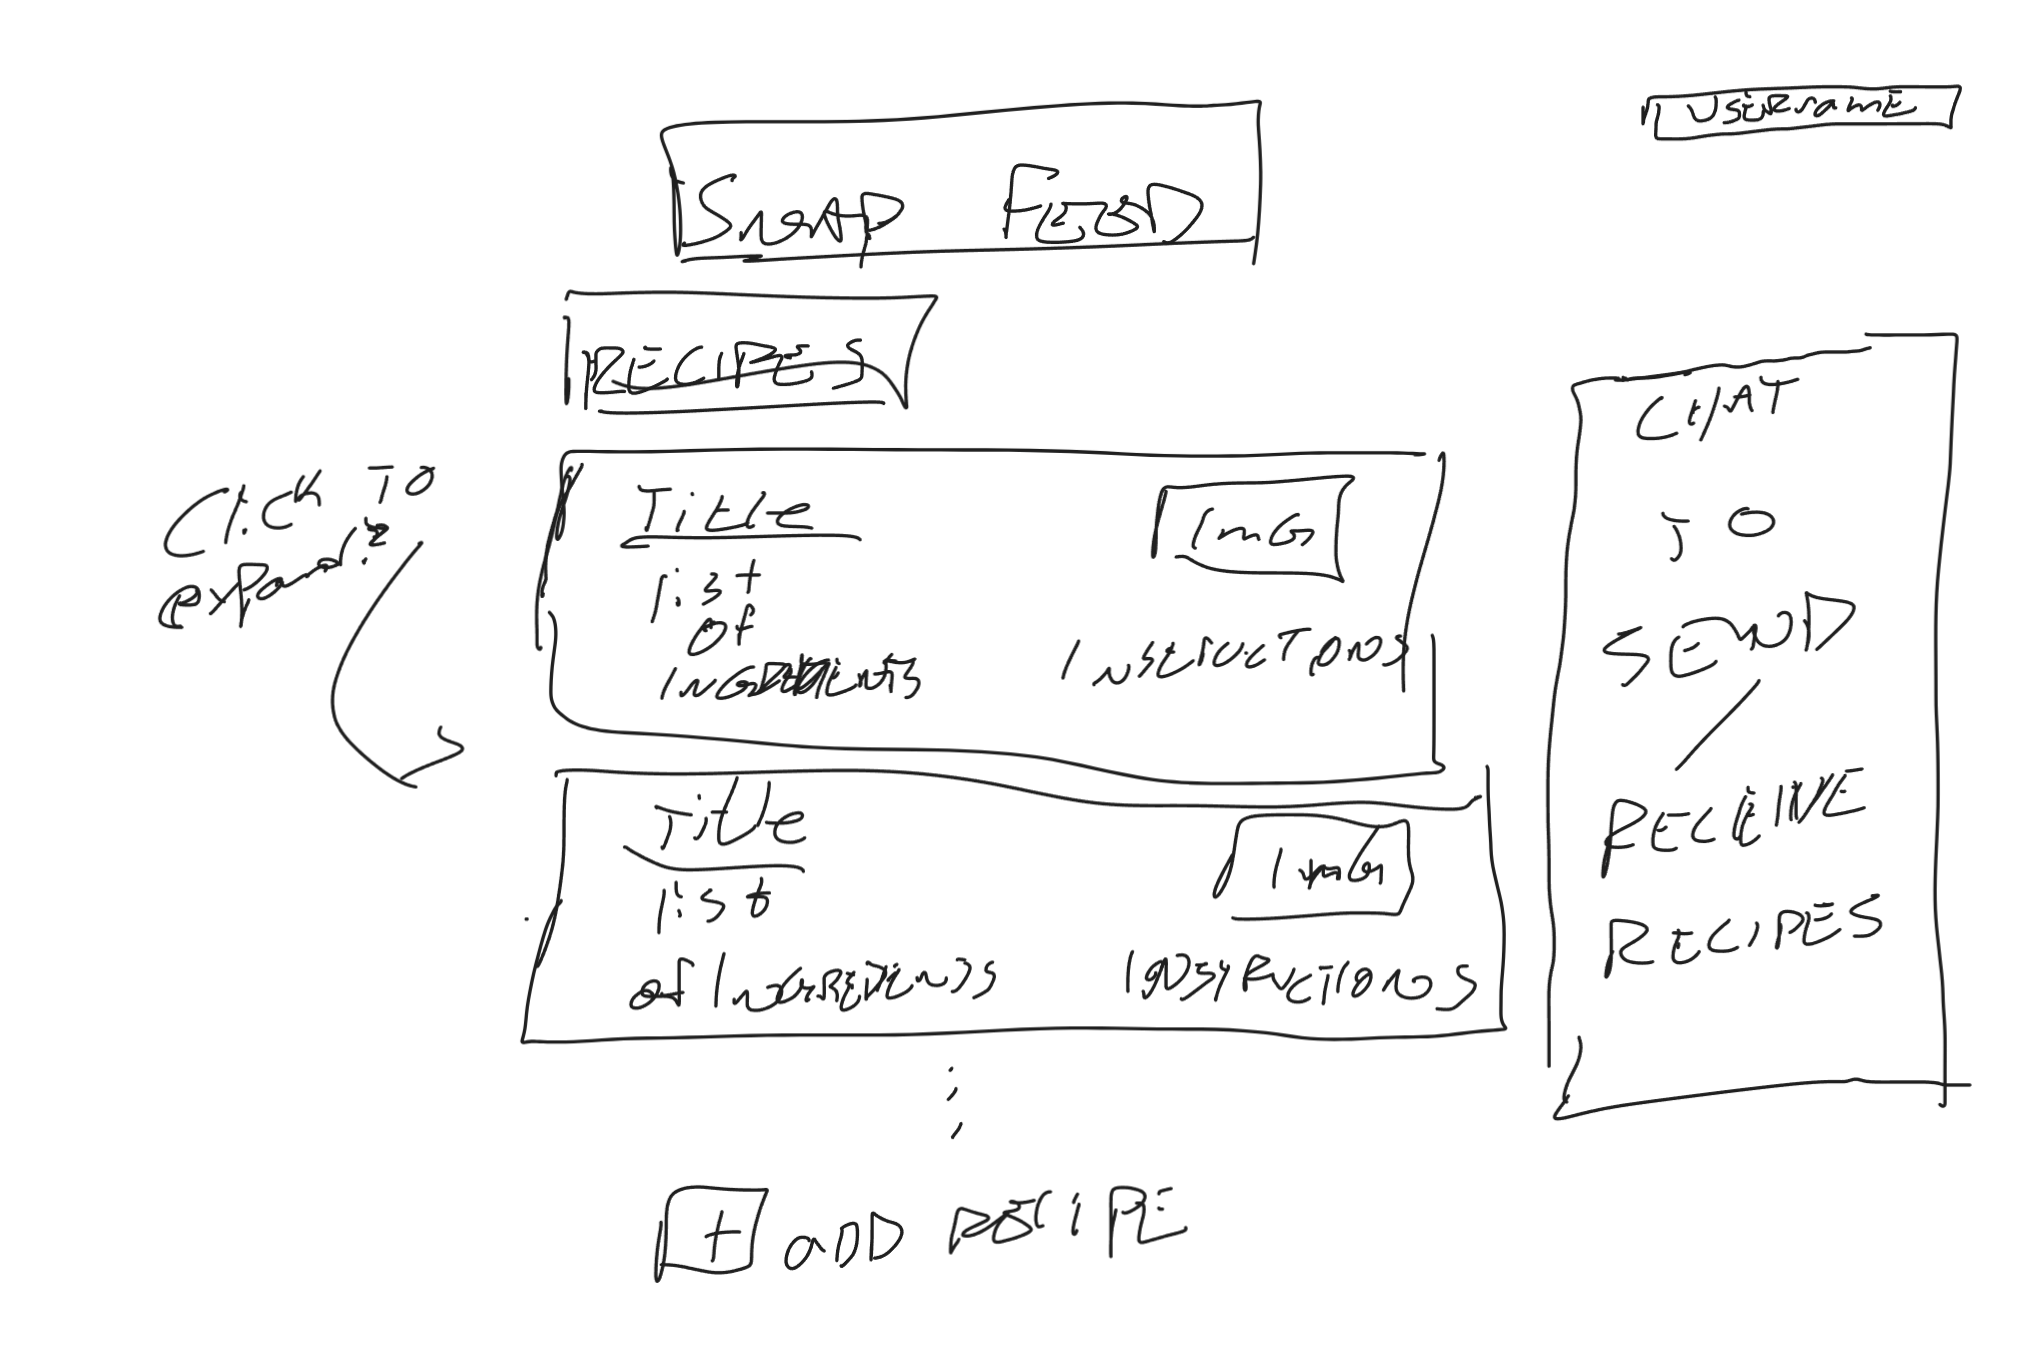 USERNAME
SWAP FOOD
RECIPES
Click TO
expand!?
Title
list
of
INGREDIENTS
IMG
INSTRUCTIONS
Title
list
of INGREDIENTS
IMG
INSTRUCTIONS
CHAT
TO
SEND
/
RECEIVE
RECIPES
+ ADD RECIPE